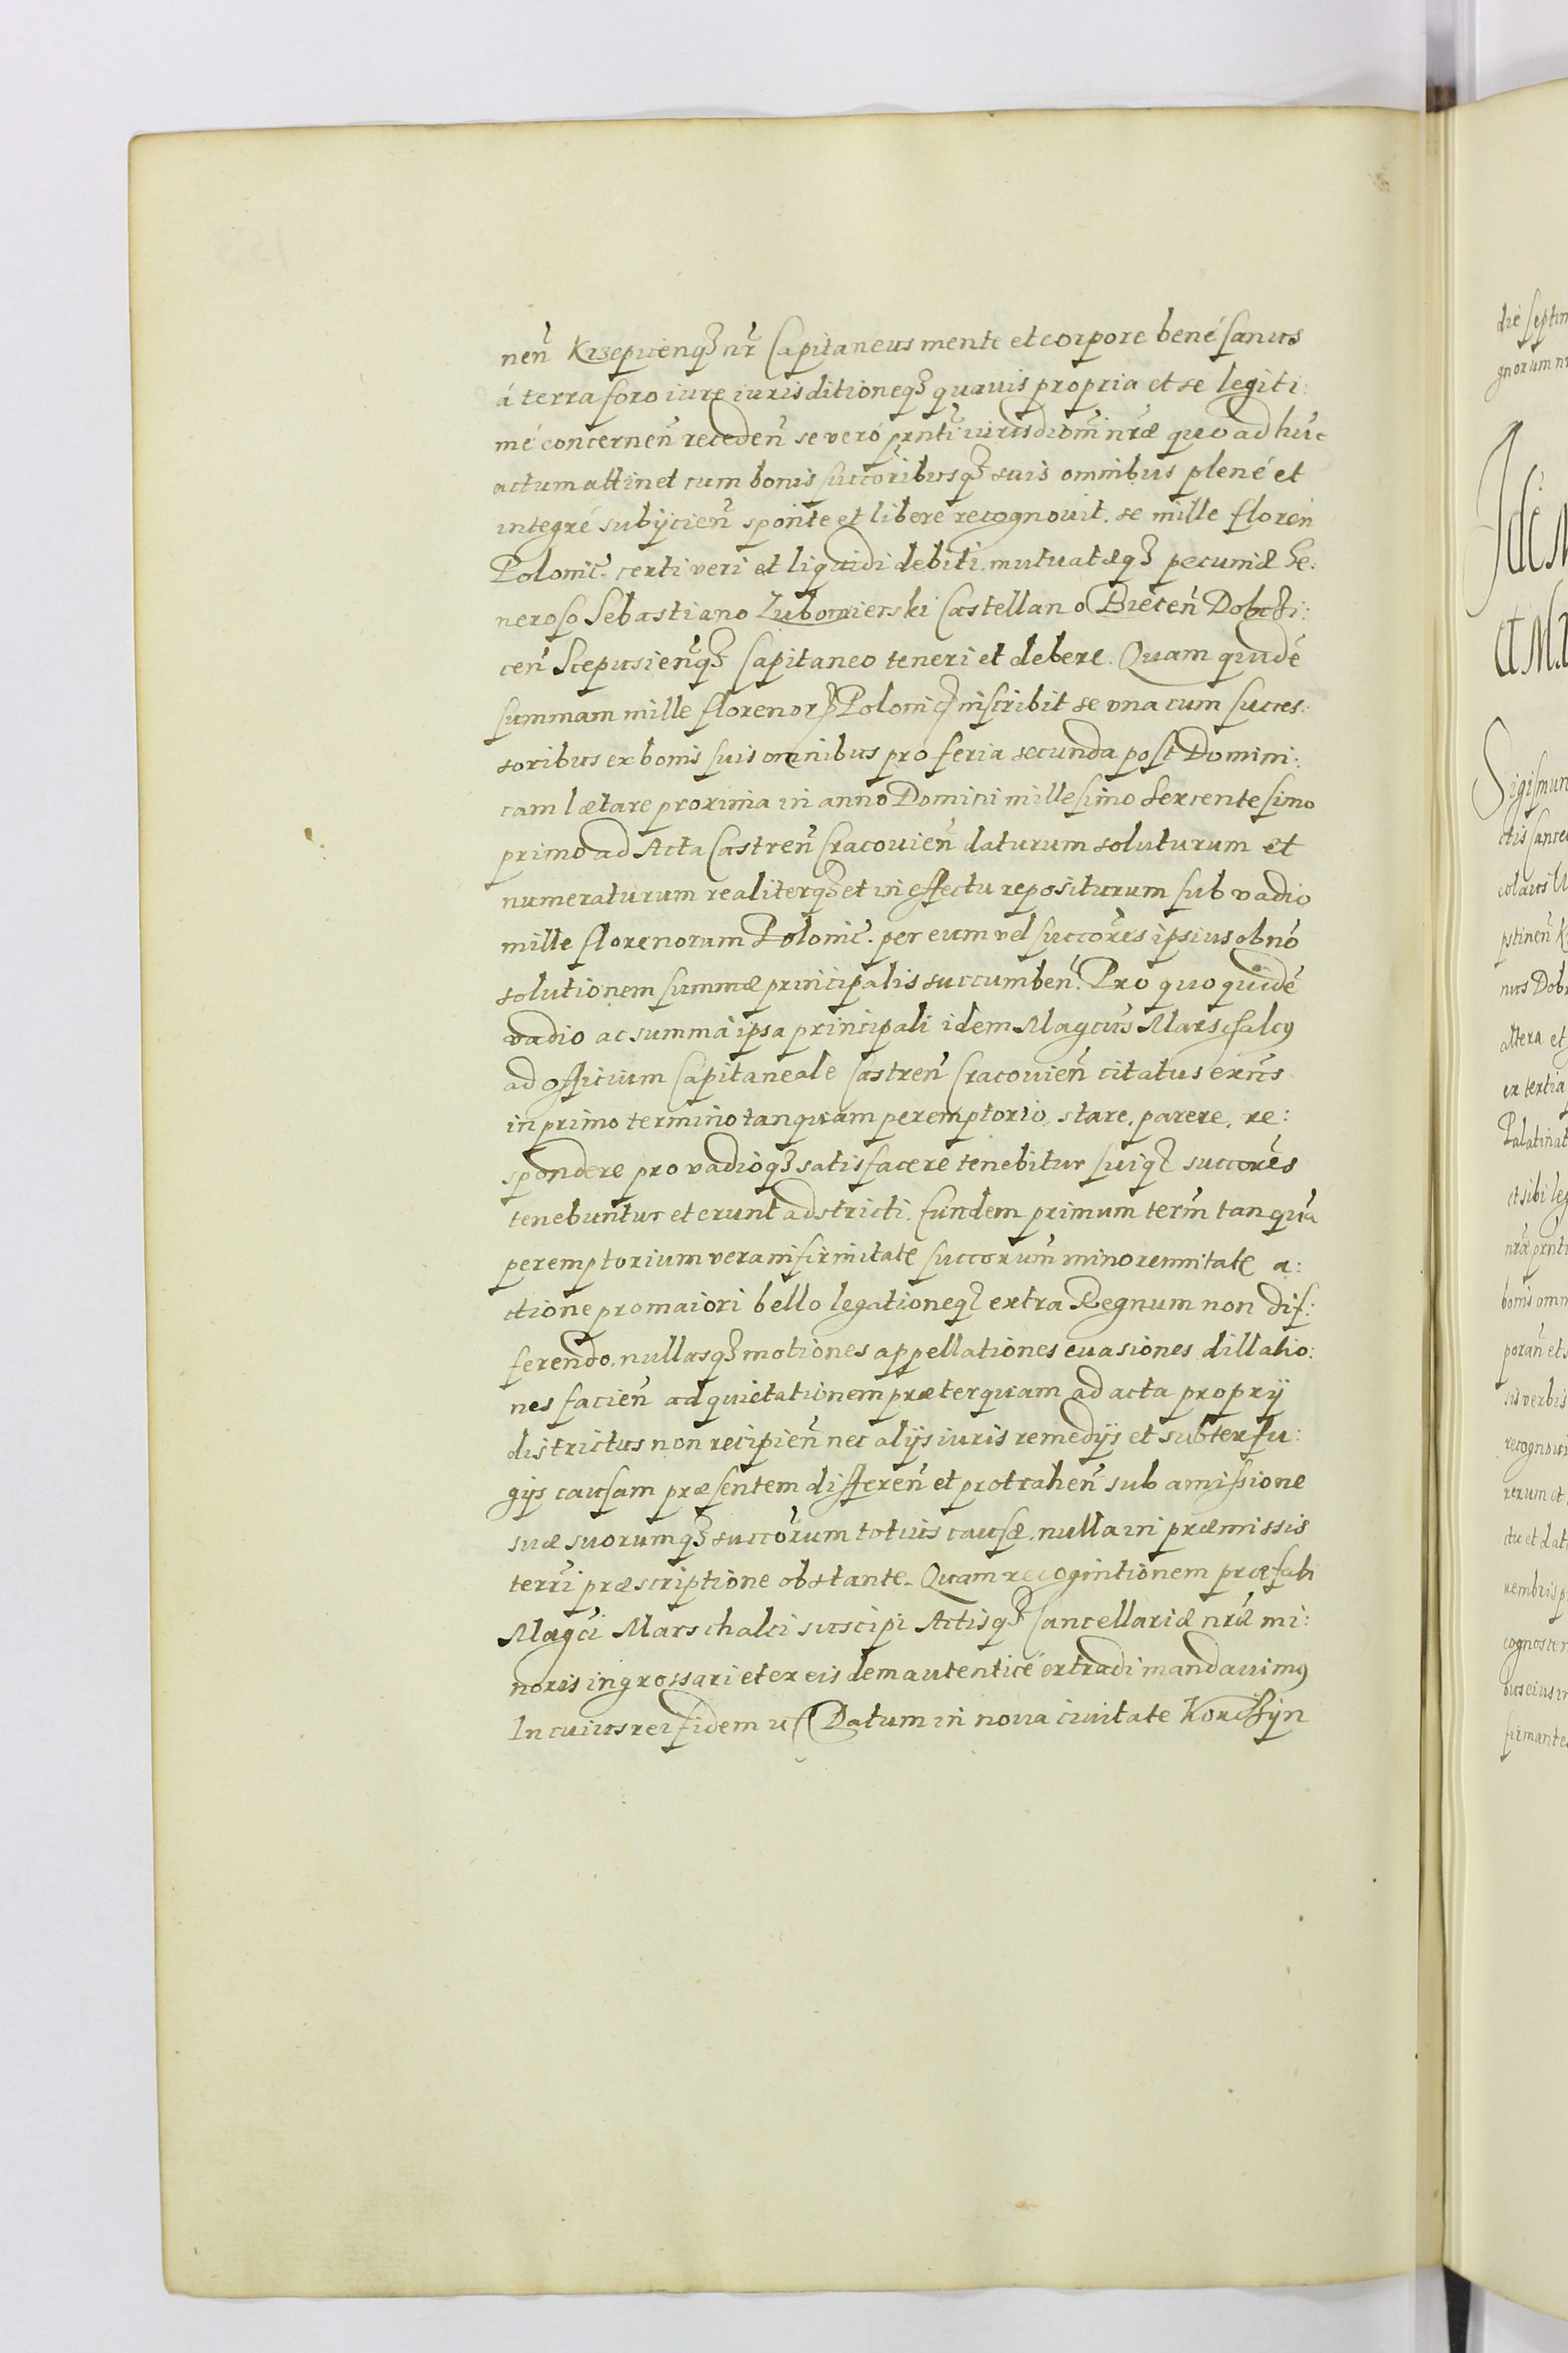 neñ Krzepicenq₃ nr̃ Capitaneus mente et corpore bené sanus
á terra foro iure iurisditioneq₃ quauis propria et se legiti:
mé concerneñ recedeñ se veró prnti iurisdiom̃ nr̃æ quo ad húc
actum attinet cum bonis succoribusq₃ suis omnibus plené et
integré subijcieñ sponte et libere recognouit. se mille floren
Polonic̃. certi veri et liquidi debiti. mutuatæq₃ pecuniæ Ge:
neroso Sebastiano Lubomierski Castellano Biecen̄ Dobczi:
cen̄ Scepusien̄q₃ Capitaneo teneri et debere. Quam quidé
summam mille florenor Polonic inscribit se vna cum succes:
soribus ex bonis suis omnibus pro feria secunda post Domini:
cam lætare proxima in anno Domini millesimo sexcentesimo
primo ad Acta Castren̄ Cracouien̄ daturum soluturum et
numeraturum realiterq₃ et in effectu repositurum sub vadio
mille florenorum Polonic̃. per eum vel succores ipsius ob nó
solutionem summæ principalis succumben̄. Pro quo quidé
vadio ac summa ipsa principali idem Magcus Marschalcus
ad officium Capitaneale Castren̄ Cracouien̄ citatus exñs
in primo termino tanquam peremptorio, stare, parere, re:
spondere pro vadioq₃ satisfacere tenebitur suiq₃ succores
tenebuntur et erunt adstricti. Eundem primum term̃ tanquã
peremptorium vera infirmitate succorum minorennitate a:
ctione pro maiori bello legationeq₃ extra Regnum non dif:
ferendo, nullasq₃ motiones appellationes euasiones dillatio:
nes facien̄ ad quietationem præterquam ad acta proprij
districtus non recipien̄ nec alijs iuris remedijs et subterfu:
gijs causam præsentem differen̄ et protrahen̄ sub amissione
suæ suorumq₃ succorum totius causæ, nulla in præmissis
terri præscriptione obstante. Quam recognitionem præfati
Magci Marschalci suscipi Actisq₃ Cancellariæ nr̃æ mi:
noris ingrossari et ex eisdem autenticé extradi mandauimus
In cuius rei fidem Datum in noua ciuitate Korczyn